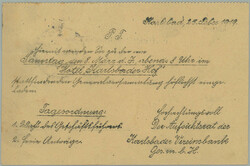 Karlsbad, 22. Febr. 1919
P. T.
Hiermit werden Sie zu der am
Samstag, am 8. März d. J. abends 8 Uhr im
Hotel Karlsbader Hof
stattfindenden Generalversammlung höflichst einge-
laden.
Tagesordnung:
1. Wahl des Geschäftsführers
2. Freie Anträge.
Hochachtungsvoll
Der Aufsichtsrat der
Karlsbader Vereinsbank
G. m. b. H.